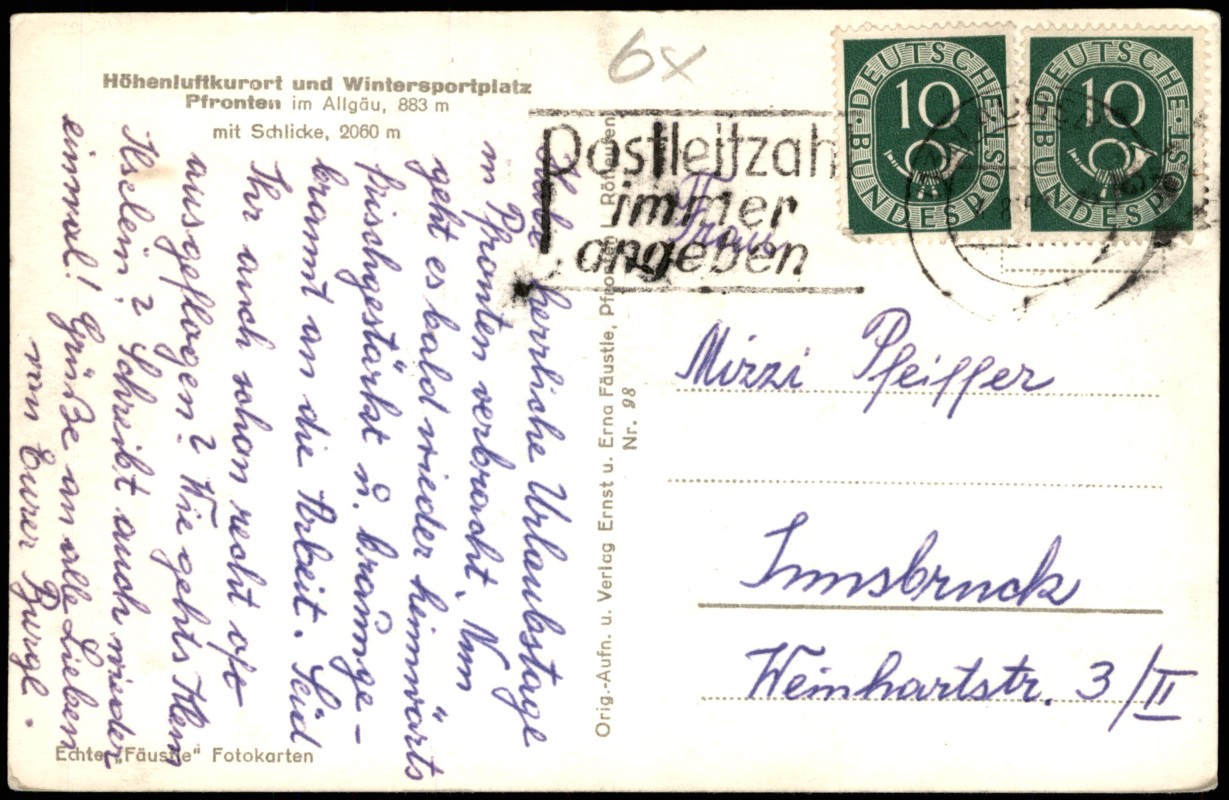 6x
Höhenluftkurort und Wintersportplatz
Pfronten im Allgäu, 883 m
mit Schlicke, 2060 m
Postleitzah
immer
angeben
DEUTSCHE BUNDESPOST
10
DEUTSCHE BUNDESPOST
10
Habe herrliche Urlaubstage
in Pfronten verbracht. Nun
geht es bald wieder heimwärts
frischgestärkt u. bräunge-
brannt an die Arbeit. Seid
Ihr auch schon recht oft
ausgeflogen? Wie gehts Klein
Ilselein? Schreibt auch wieder
einmal! Grüße an alle Lieben
von Eurer Burgl.
Orig.-Aufn. u. Verlag Ernst u. Erna Fäustle, Pfronten Röfleuten
Nr. 98
Frau
Mizzi Pfeiffer
Innsbruck
Weinhartstr. 3/II
Echte „Fäustle" Fotokarten